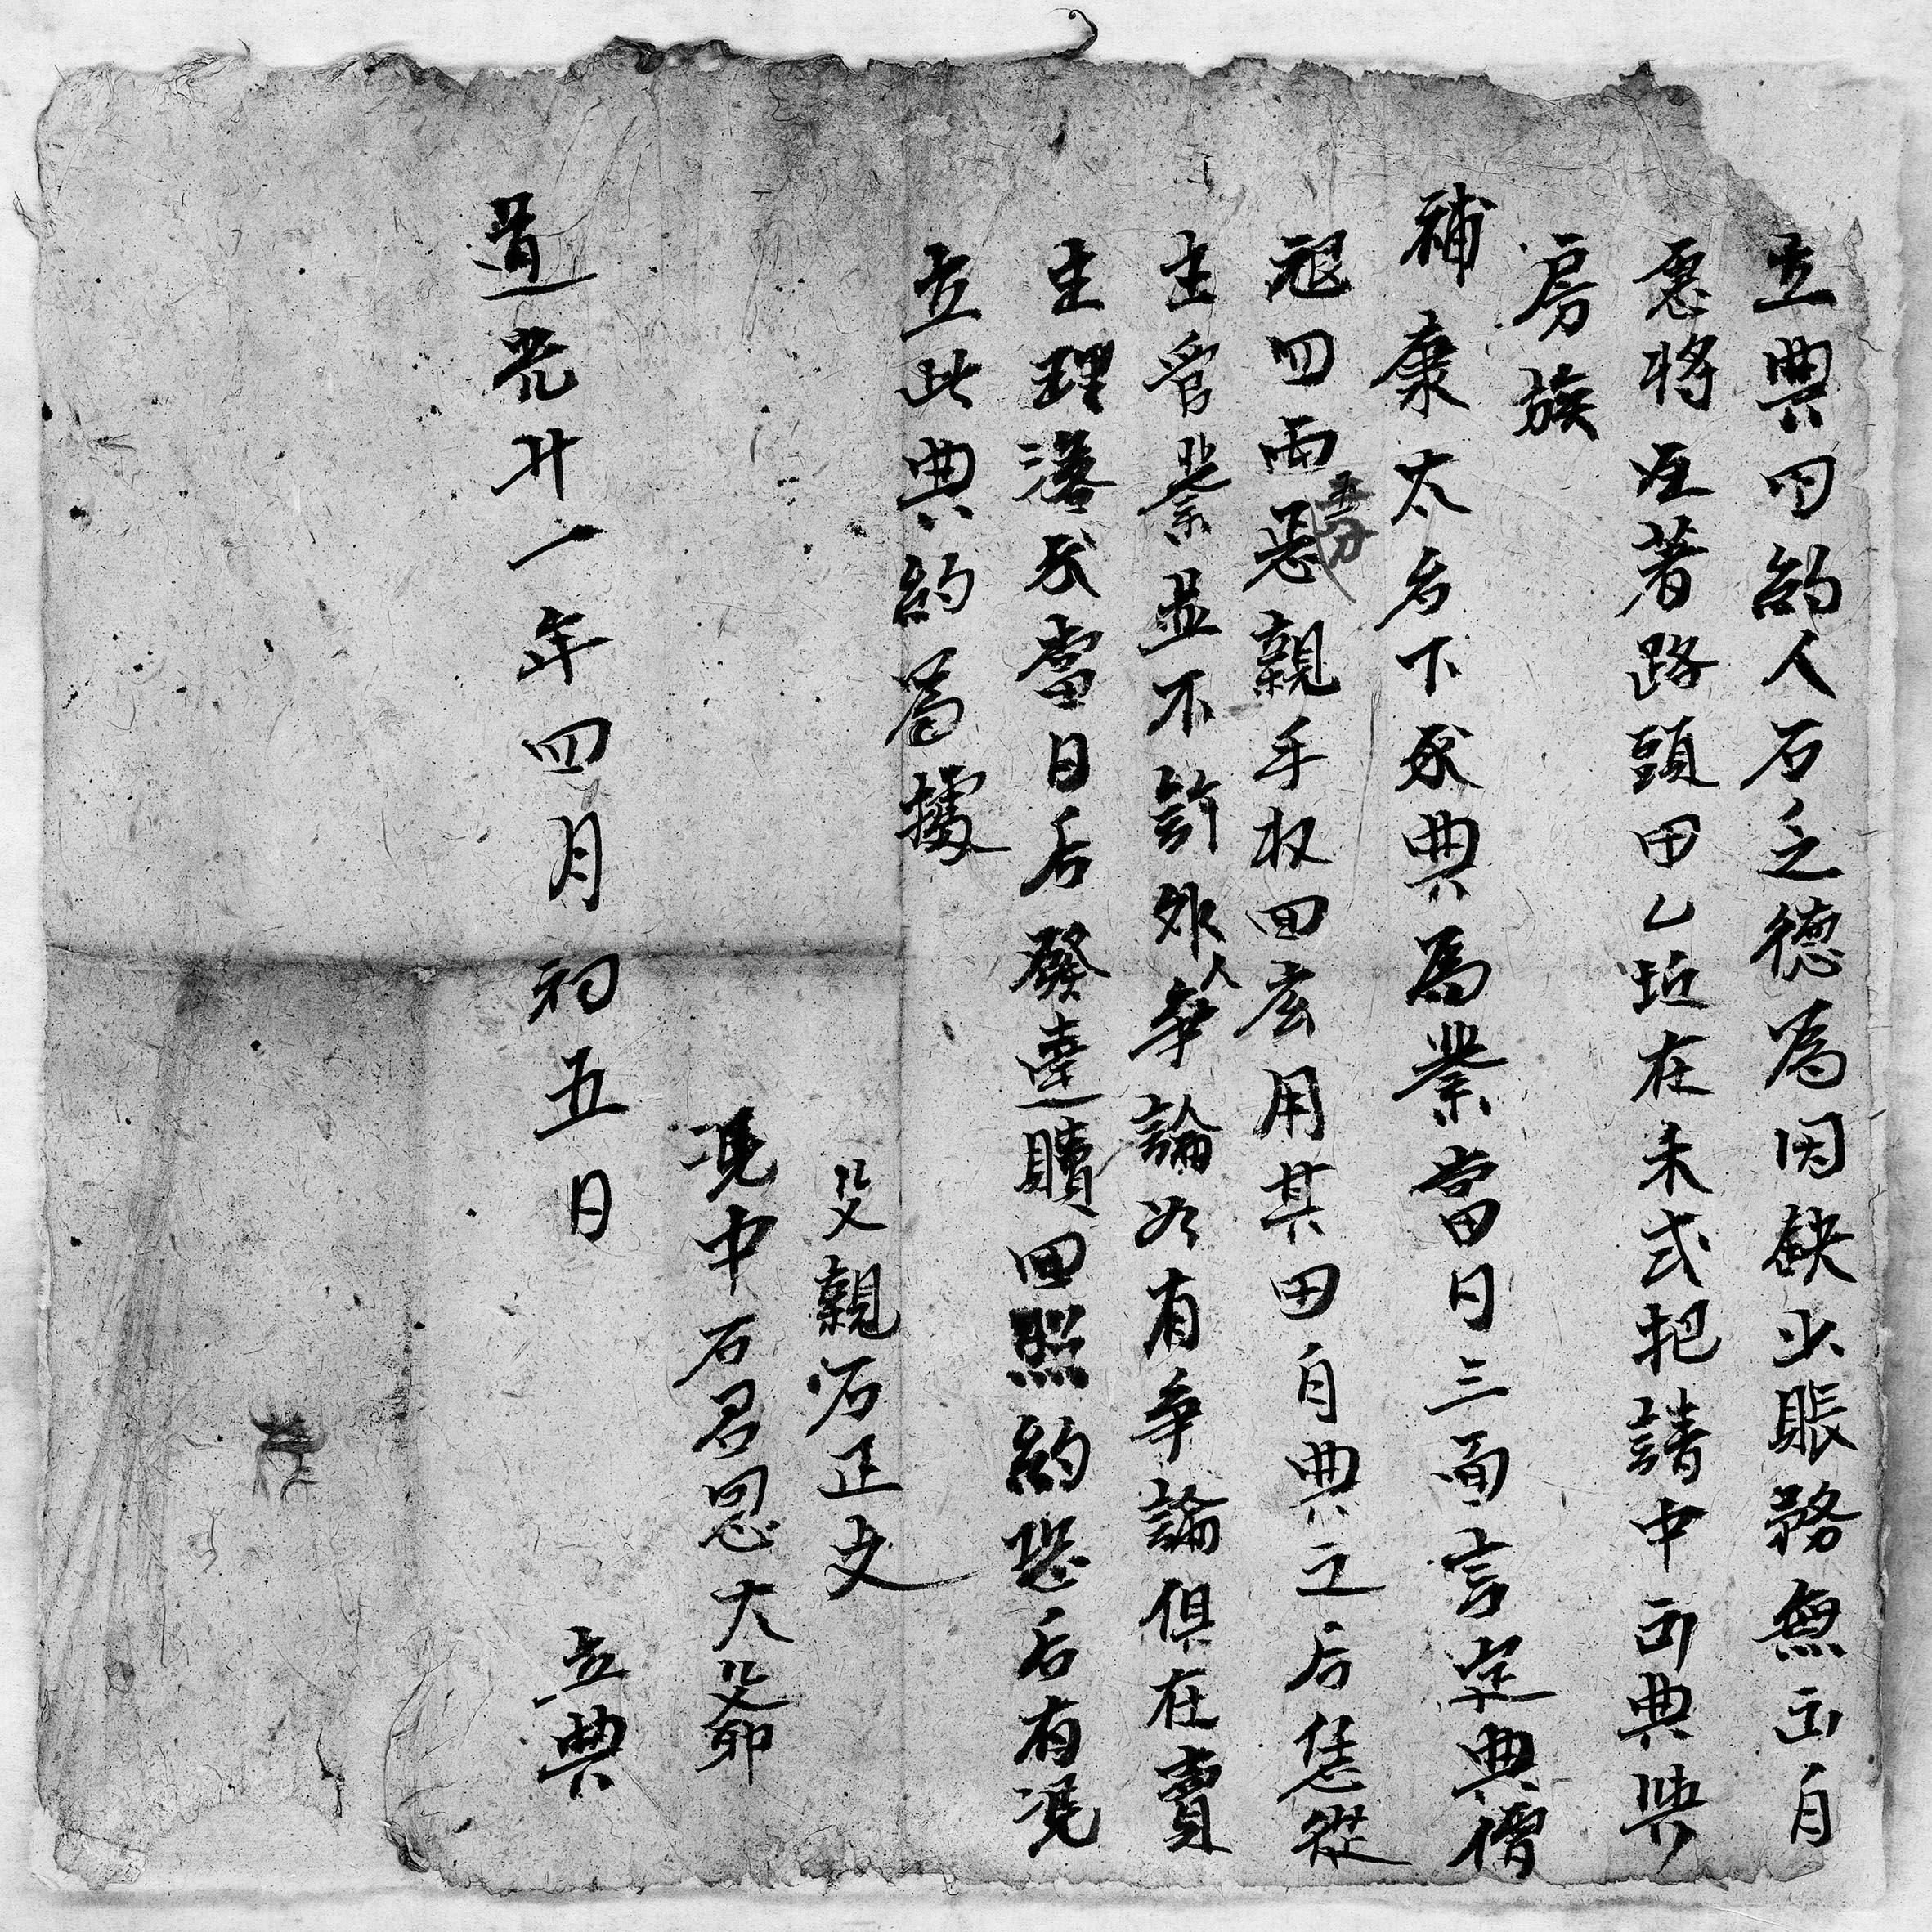 立典田約人石之德為因缺少賬務無出自
愿將座著路頭田乙坵在禾弍把請中出典與
房族
補康太名下承典為業當日三面言定典價
銀四両五分整親手收回应用其田自典之后凴從
主管業並不許外人爭論如有爭論俱在賣
主理落承當日后發達贖回照約恐后有凴
立此典約為據
父親石正文
凴中石君恩大爺
道光廿一年四月初五日 立典